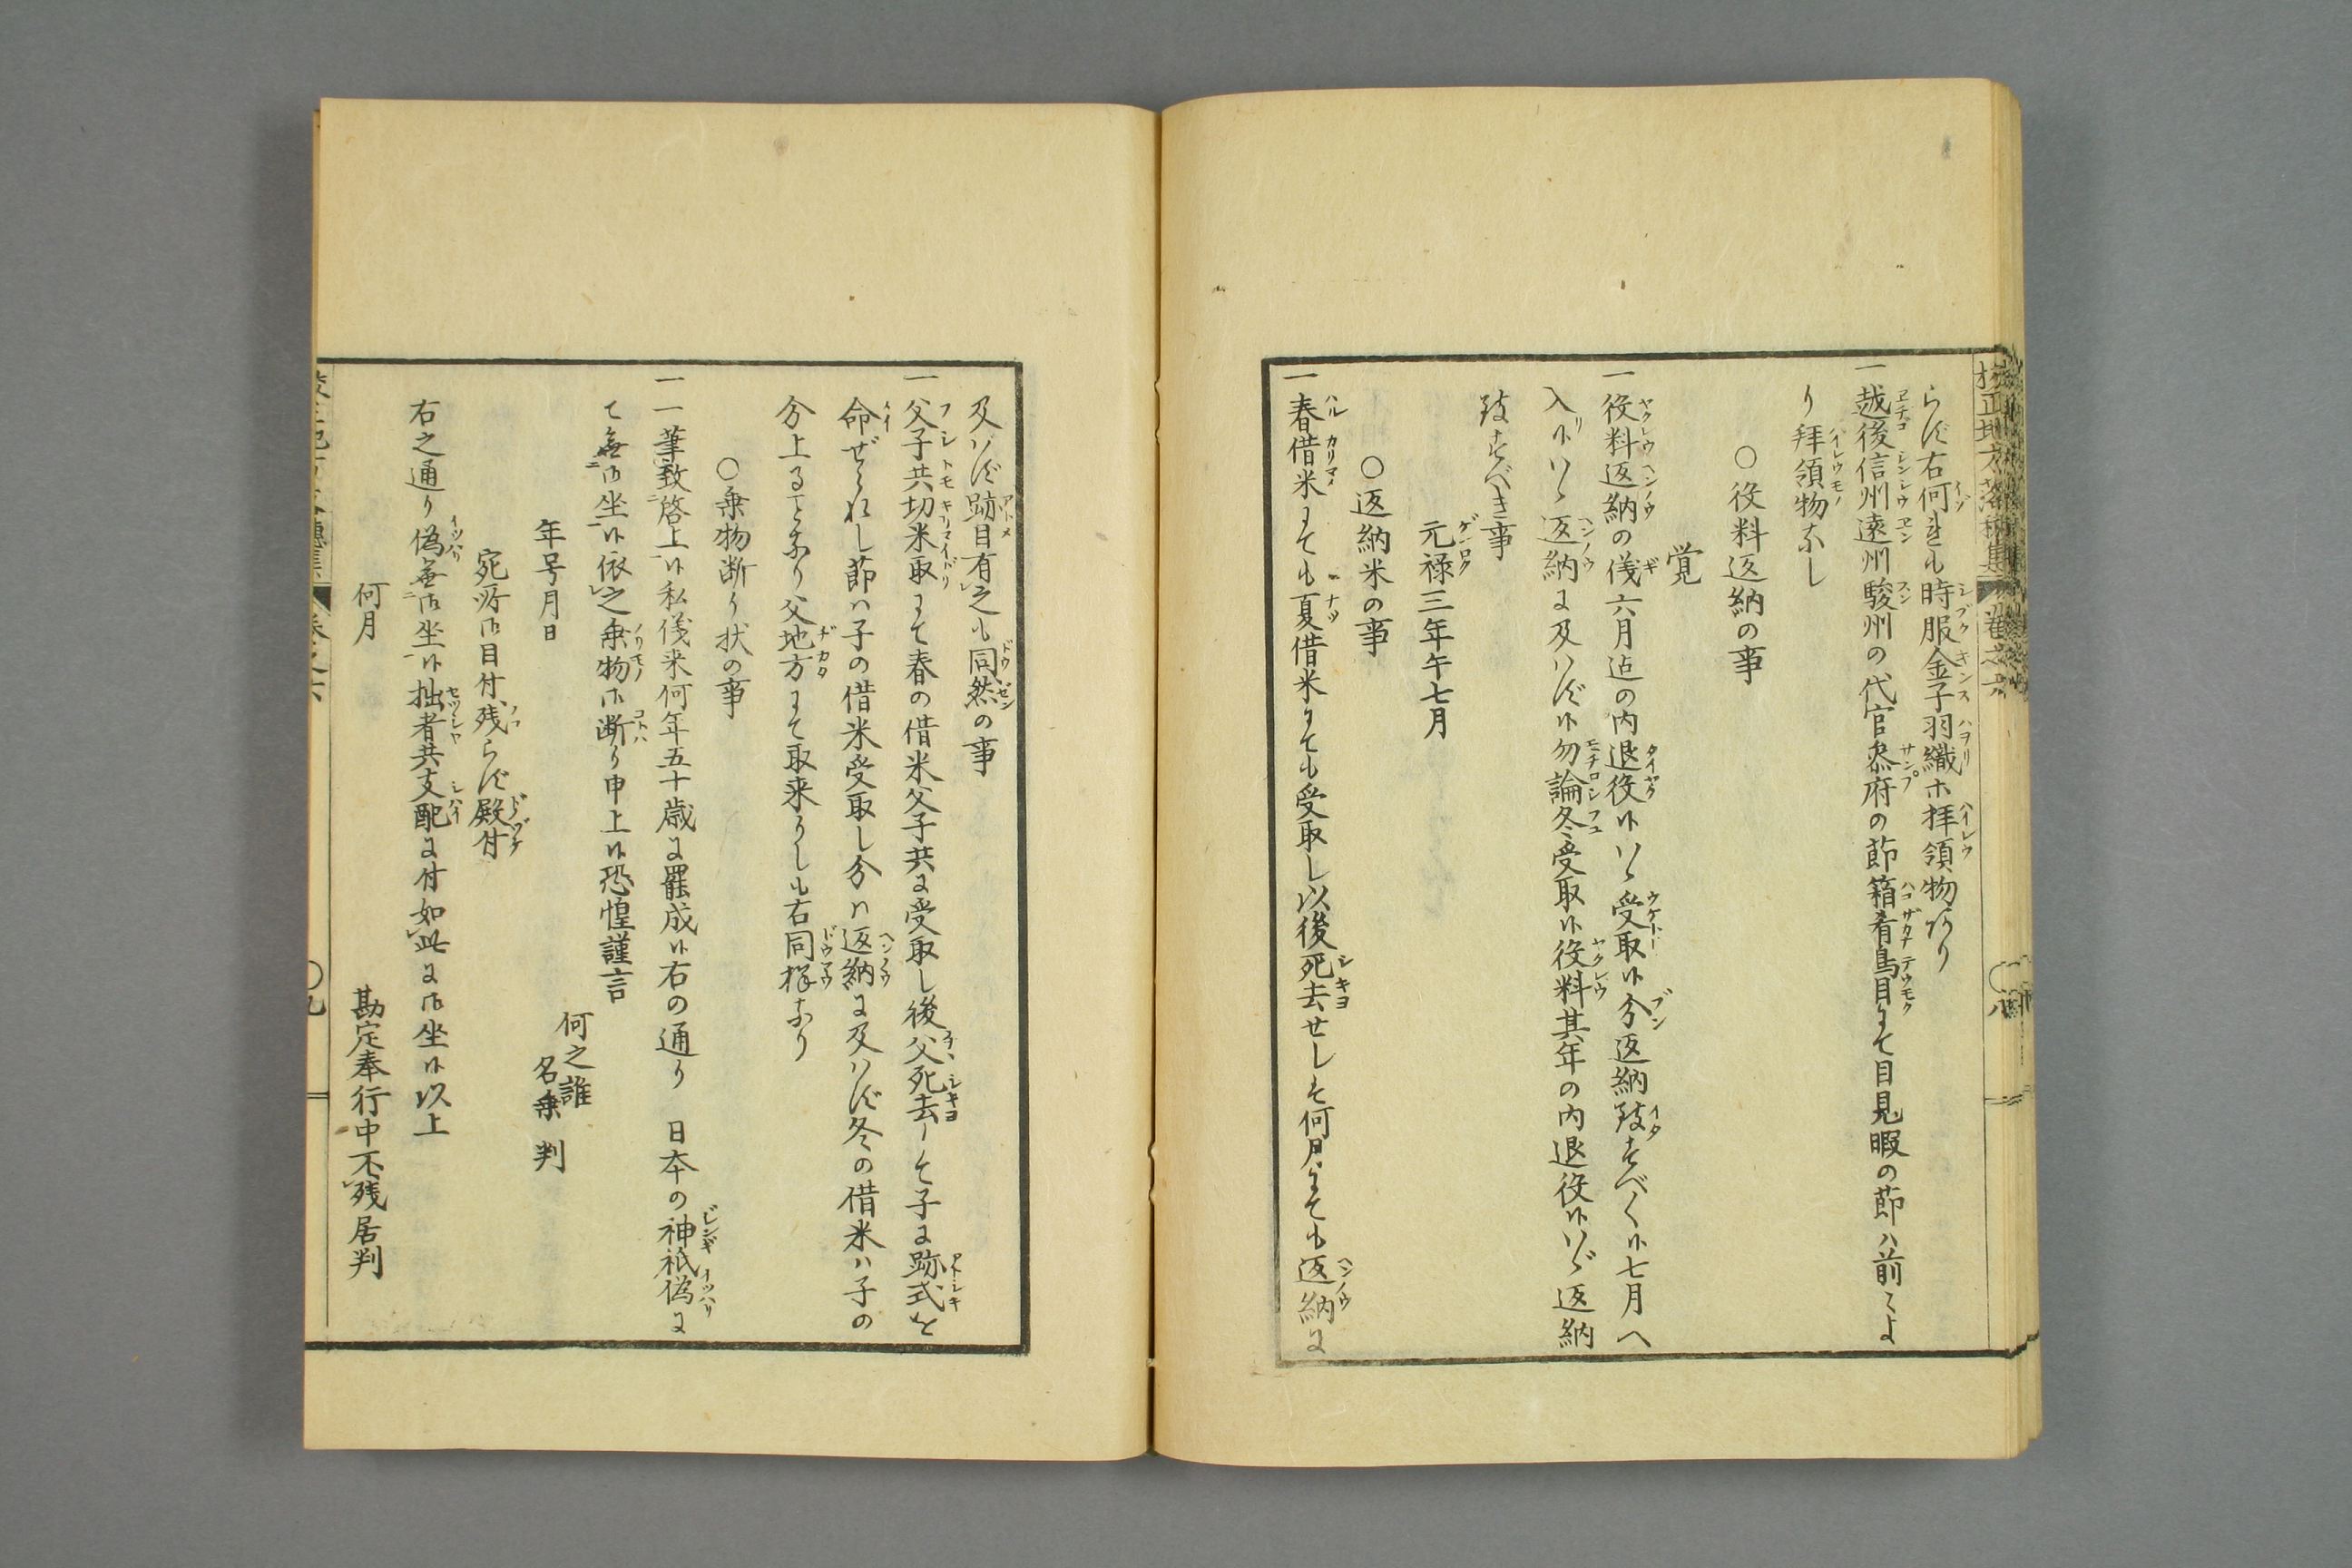 らず右何れも時服金子羽織ホ拝領物あり
一越後信州遠州駿州の代官参府の節箱肴鳥目にて目見暇の節ハ前々よ
り拝領物なし
○役料返納の事
覚
一役料返納の儀六月迄の内退役候ハヽ受取候分返納致すべく候七月へ
入候ハヽ返納に及ハず候勿論冬受取候役料其年の内退役候ハヾ返納
致すべき事
元禄三年午七月
○返納米の事
一春借米にても夏借米にても受取し以後死去せしそ何月にても返納に
及ハず跡目有之も同然の事
一父子共切米取にて春の借米父子共に受取し後父死去して子に跡式を
命ぜられし節ハ子の借米受取し分ハ返納に及ハず冬の借米ハ子の
分上ることなり父地方にて取来りしも右同様なり
○乗物断り状の事
一一筆致啓上候私儀来何年五十歳に罷成候右の通り 日本の神祇偽に
て無御坐候依之乗物御断り申上候恐惶謹言
何之誰
年号月日
名乗 判
宛所御目付残らず殿付
右之通り偽無御坐候拙者共支配に付如此に御坐候以上
何月
勘定奉行中不残居判
校正地方落穂集 巻之六
○八
○九